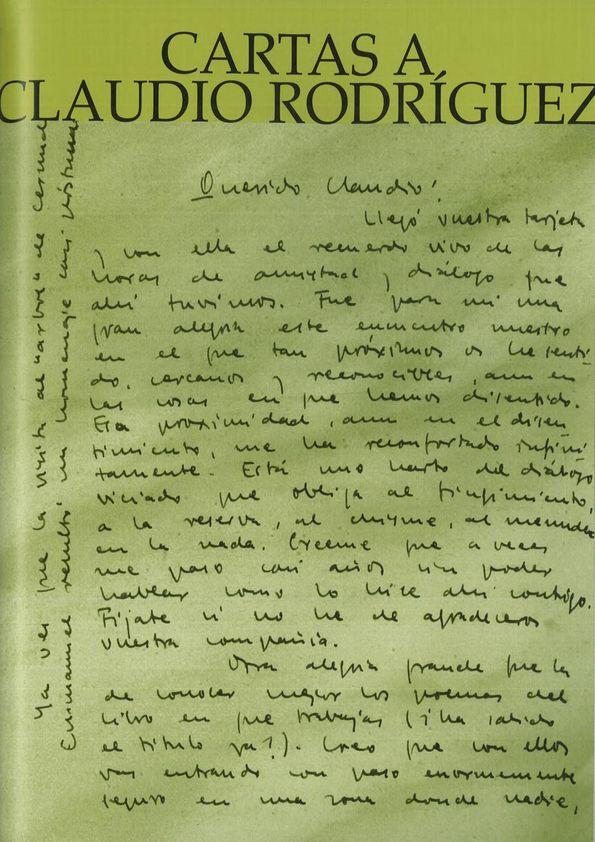 CARTAS A
CLAUDIO RODRÍGUEZ
Querido Claudio:
Llegó vuestra tarjeta
y con ella el recuerdo vivo de las
horas de amistad y diálogo que
ahí tuvimos. Fue para mí una
gran alegría este encuentro nuestro
en el que tan próximos os he senti-
do, cercanos y reconocibles, aun en
las cosas en que hemos disentido.
Esa proximidad, aun en el disen
timiento, me ha reconfortado infini
tamente. Está uno harto del diálogo
viciado que obliga al fingimiento,
a la reserva, al chisme, al
en la nada. Créeme que a veces
me paso casi años sin poder
hablar como lo hice ahí contigo.
Fíjate si no he de agradeceros
vuestra compañía.
Otra alegría grande fue la
de conocer mejor los poemas del
libro en que trabajas (¿ha salido
el título ya?). Creo que con ellos
vas entrando con paso enormemente
seguro en una zona donde nadie,
Ya ves que la visita al
resultó un homenaje casi póstumo